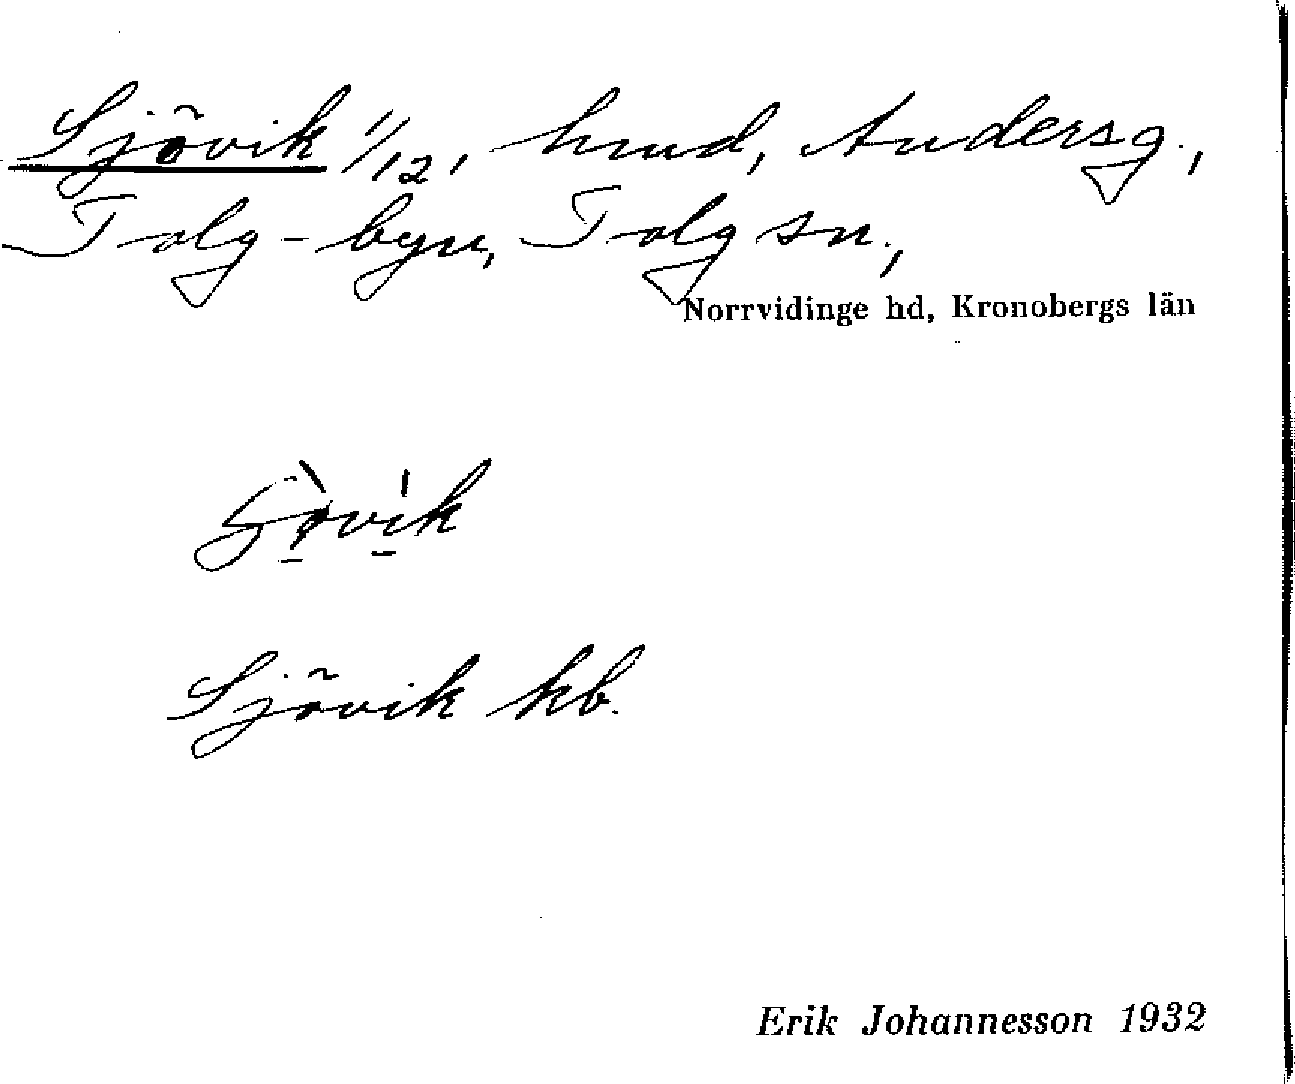 Sjövik 1/12, hmd, Andersg.,
Tolg-byn, Tolg sn.,
Norrvidinge hd, Kronobergs län
Sjövik kb.
Erik Johannesson 1932